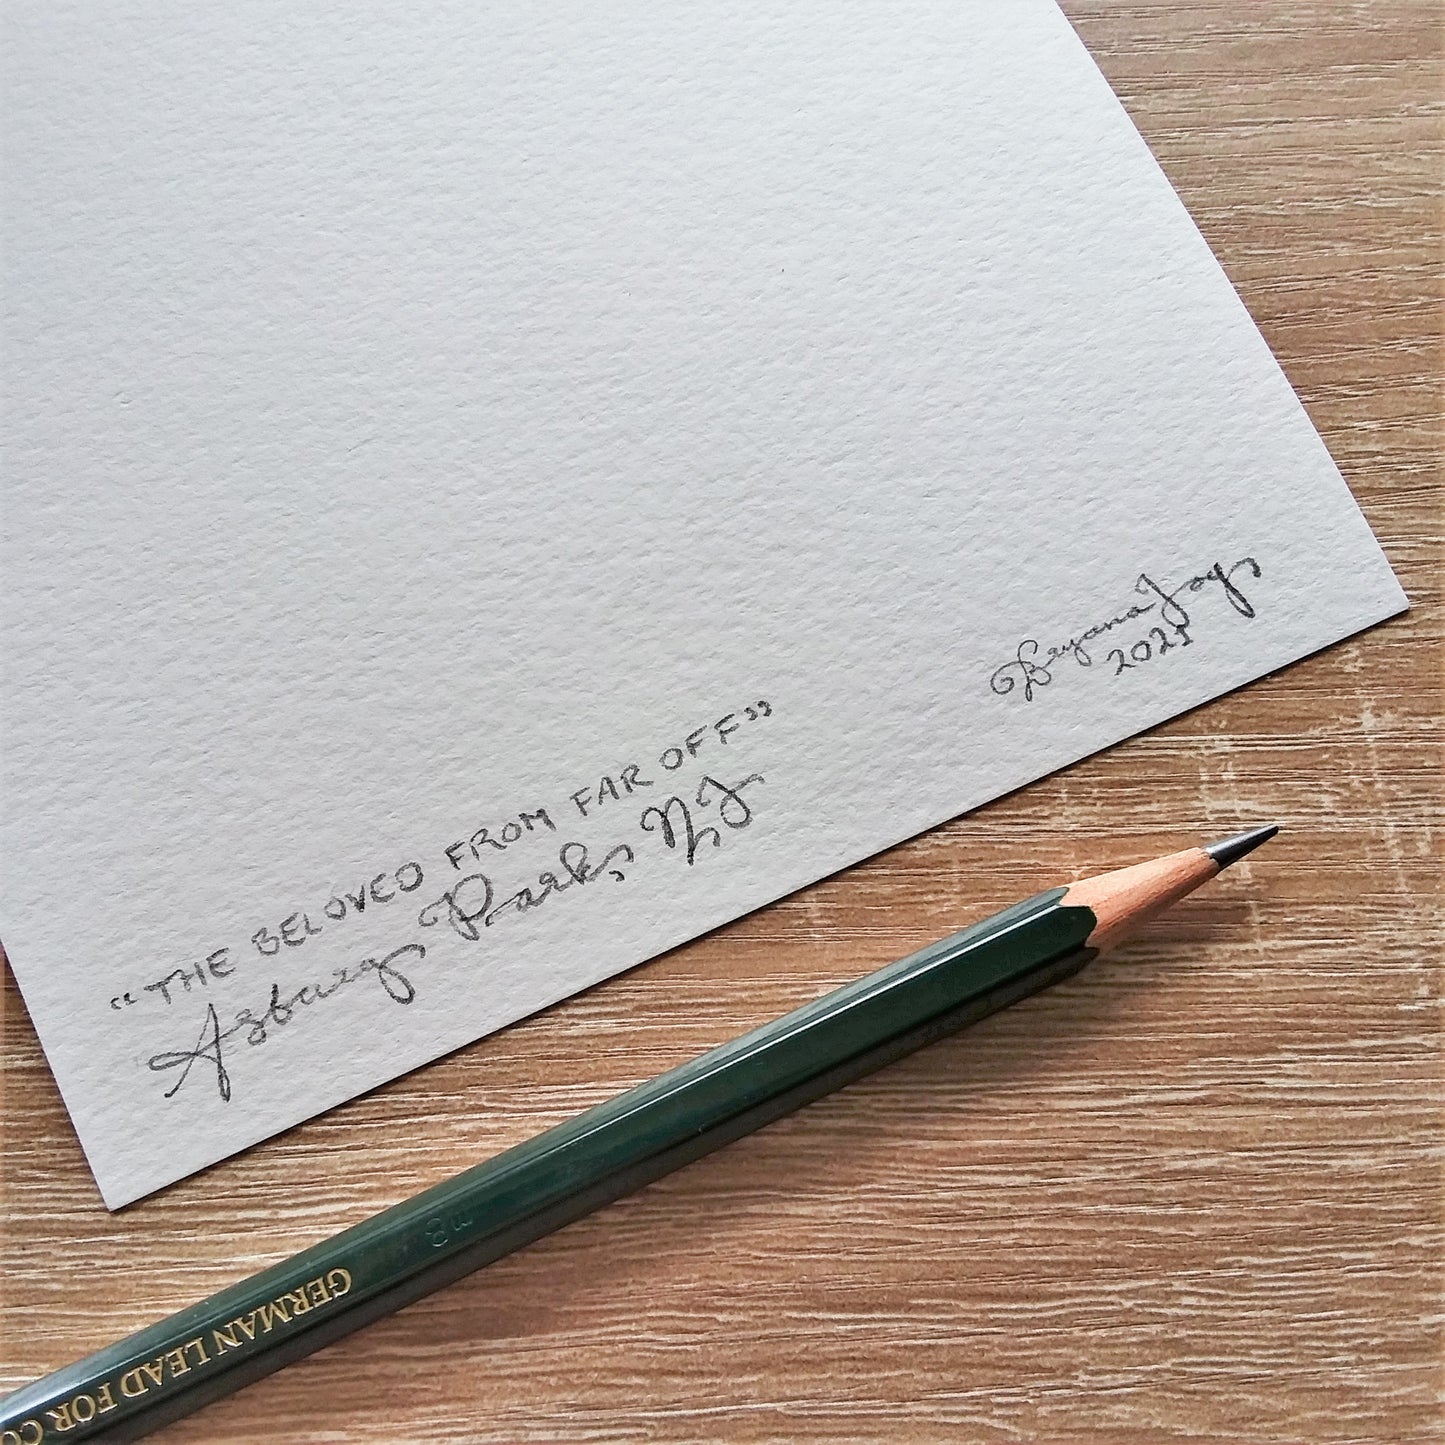 “THE BELOVED FROM FAR OFF”
Asbury Park, NJ
BryanaJoy
2021
GERMAN LEAD FOR CO